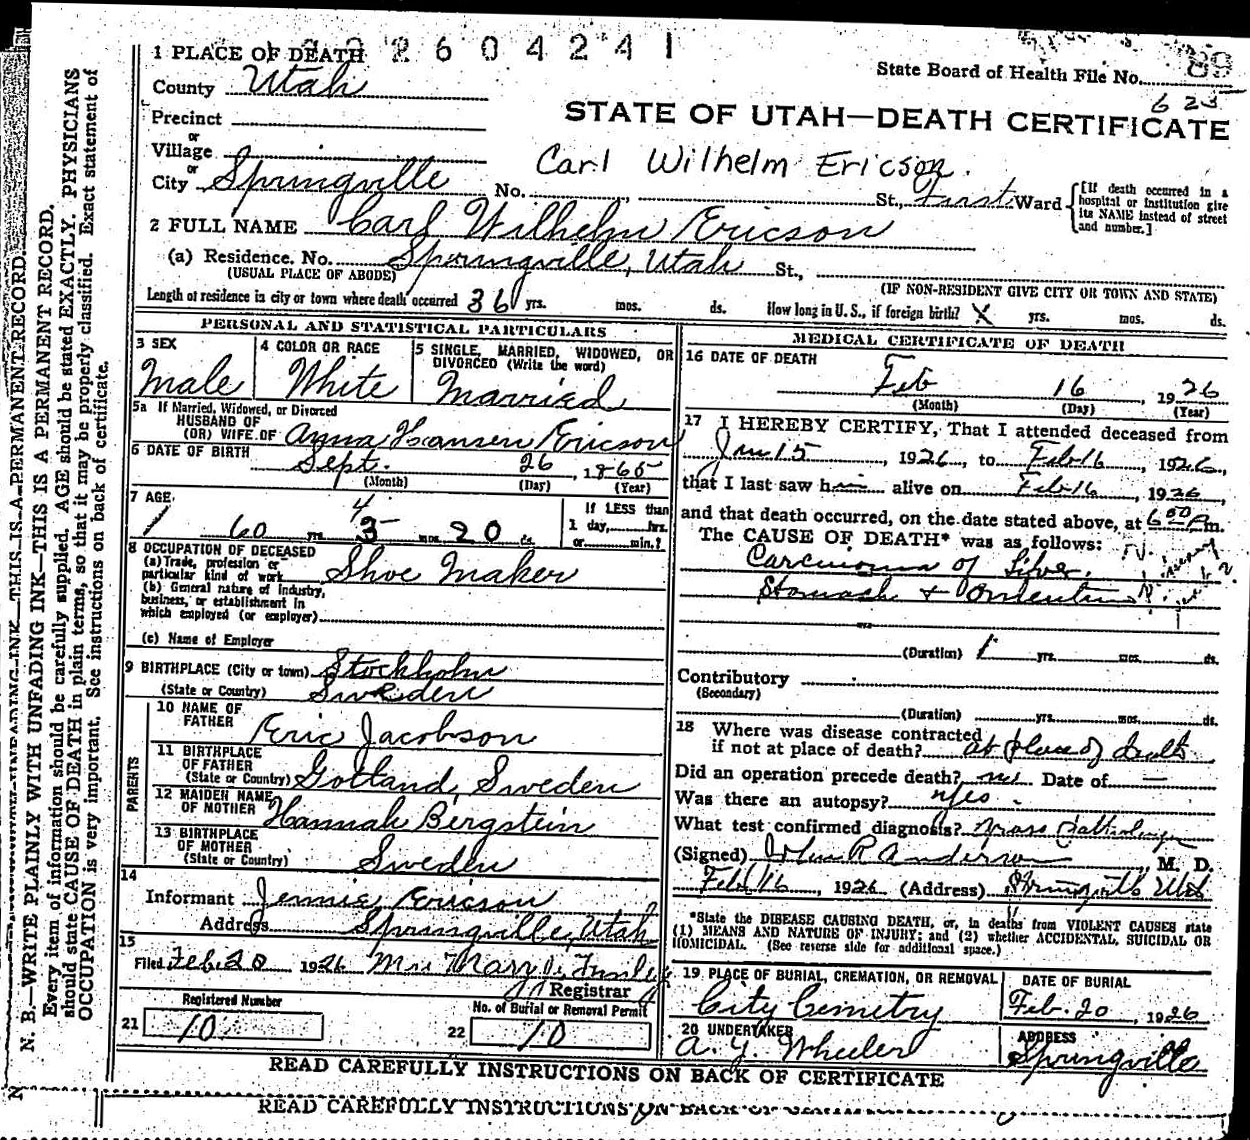 2604241
State Board of Health File No. 89
625
1 PLACE OF DEATH
County Utah
STATE OF UTAH—DEATH CERTIFICATE
Precinct
or
Village
Carl Wilhelm Ericson.
or
City Springville No. St., First Ward
[If death occurred in a hospital or institution give its NAME instead of street and number.]
2 FULL NAME Carl Wilhelm Ericson
(a) Residence. No. Springville, Utah St.,
(USUAL PLACE OF ABODE) (IF NON-RESIDENT GIVE CITY OR TOWN AND STATE)
Length of residence in city or town where death occurred 36 yrs. mos. ds. How long in U. S., if foreign birth? X yrs. mos. ds.
PERSONAL AND STATISTICAL PARTICULARS
3 SEX
Male
4 COLOR OR RACE
White
5 SINGLE, MARRIED, WIDOWED, OR
DIVORCED (Write the word)
Married
5a If Married, Widowed, or Divorced
HUSBAND OF
(OR) WIFE OF Anna Hansen Ericson
6 DATE OF BIRTH Sept. 26, 1865
(Month) (Day) (Year)
7 AGE
60 yrs. 3 4 mos. 20 ds.
If LESS than
1 day, hrs.
or min.?
8 OCCUPATION OF DECEASED
(a) Trade, profession or
particular kind of work Shoe Maker
(b) General nature of industry,
business, or establishment in
which employed (or employer)
(c) Name of Employer
9 BIRTHPLACE (City or town) Stockholm
(State or Country) Sweden
PARENTS
10 NAME OF
FATHER Eric Jacobson
11 BIRTHPLACE
OF FATHER
(State or Country) Gotland, Sweden
12 MAIDEN NAME
OF MOTHER Hannah Bergstein
13 BIRTHPLACE
OF MOTHER
(State or Country) Sweden
14
Informant Jennie Ericson
Address Springville, Utah
15
Filed Feb. 20 1926 Mrs Mary
Registrar
Registered Number
21 10
No. of Burial or Removal Permit
22 10
MEDICAL CERTIFICATE OF DEATH
16 DATE OF DEATH
Feb 16, 1926
(Month) (Day) (Year)
17 I HEREBY CERTIFY, That I attended deceased from
Jan 15, 1926, to Feb 16, 1926,
that I last saw him alive on Feb 16, 1926,
and that death occurred, on the date stated above, at 6 00 P m.
The CAUSE OF DEATH* was as follows:
Carcinoma of Liver.
Stomach + Omentum
(Duration) 1 yrs. mos. ds.
Contributory
(Secondary)
(Duration) yrs. mos. ds.
18 Where was disease contracted
if not at place of death? at place of death
Did an operation precede death? no Date of —
Was there an autopsy? yes.
What test confirmed diagnosis? Gross Pathology
(Signed) John R Anderson M. D.
Feb 16, 1926 (Address) Springville Utah
*State the DISEASE CAUSING DEATH, or, in deaths from VIOLENT CAUSES state
(1) MEANS AND NATURE OF INJURY; and (2) whether ACCIDENTAL, SUICIDAL OR
HOMICIDAL. (See reverse side for additional space.)
19 PLACE OF BURIAL, CREMATION, OR REMOVAL
City Cemetry
DATE OF BURIAL
Feb. 20, 1926
20 UNDERTAKER
A. Y. Wheeler
ADDRESS
Springville
READ CAREFULLY INSTRUCTIONS ON BACK OF CERTIFICATE
READ CAREFULLY INSTRUCTIONS ON BACK OF
N. B.—WRITE PLAINLY WITH UNFADING INK—THIS IS A PERMANENT RECORD.
Every item of information should be carefully supplied. AGE should be stated EXACTLY. PHYSICIANS
should state CAUSE OF DEATH in plain terms, so that it may be properly classified. Exact statement of
OCCUPATION is very important. See instructions on back of certificate.